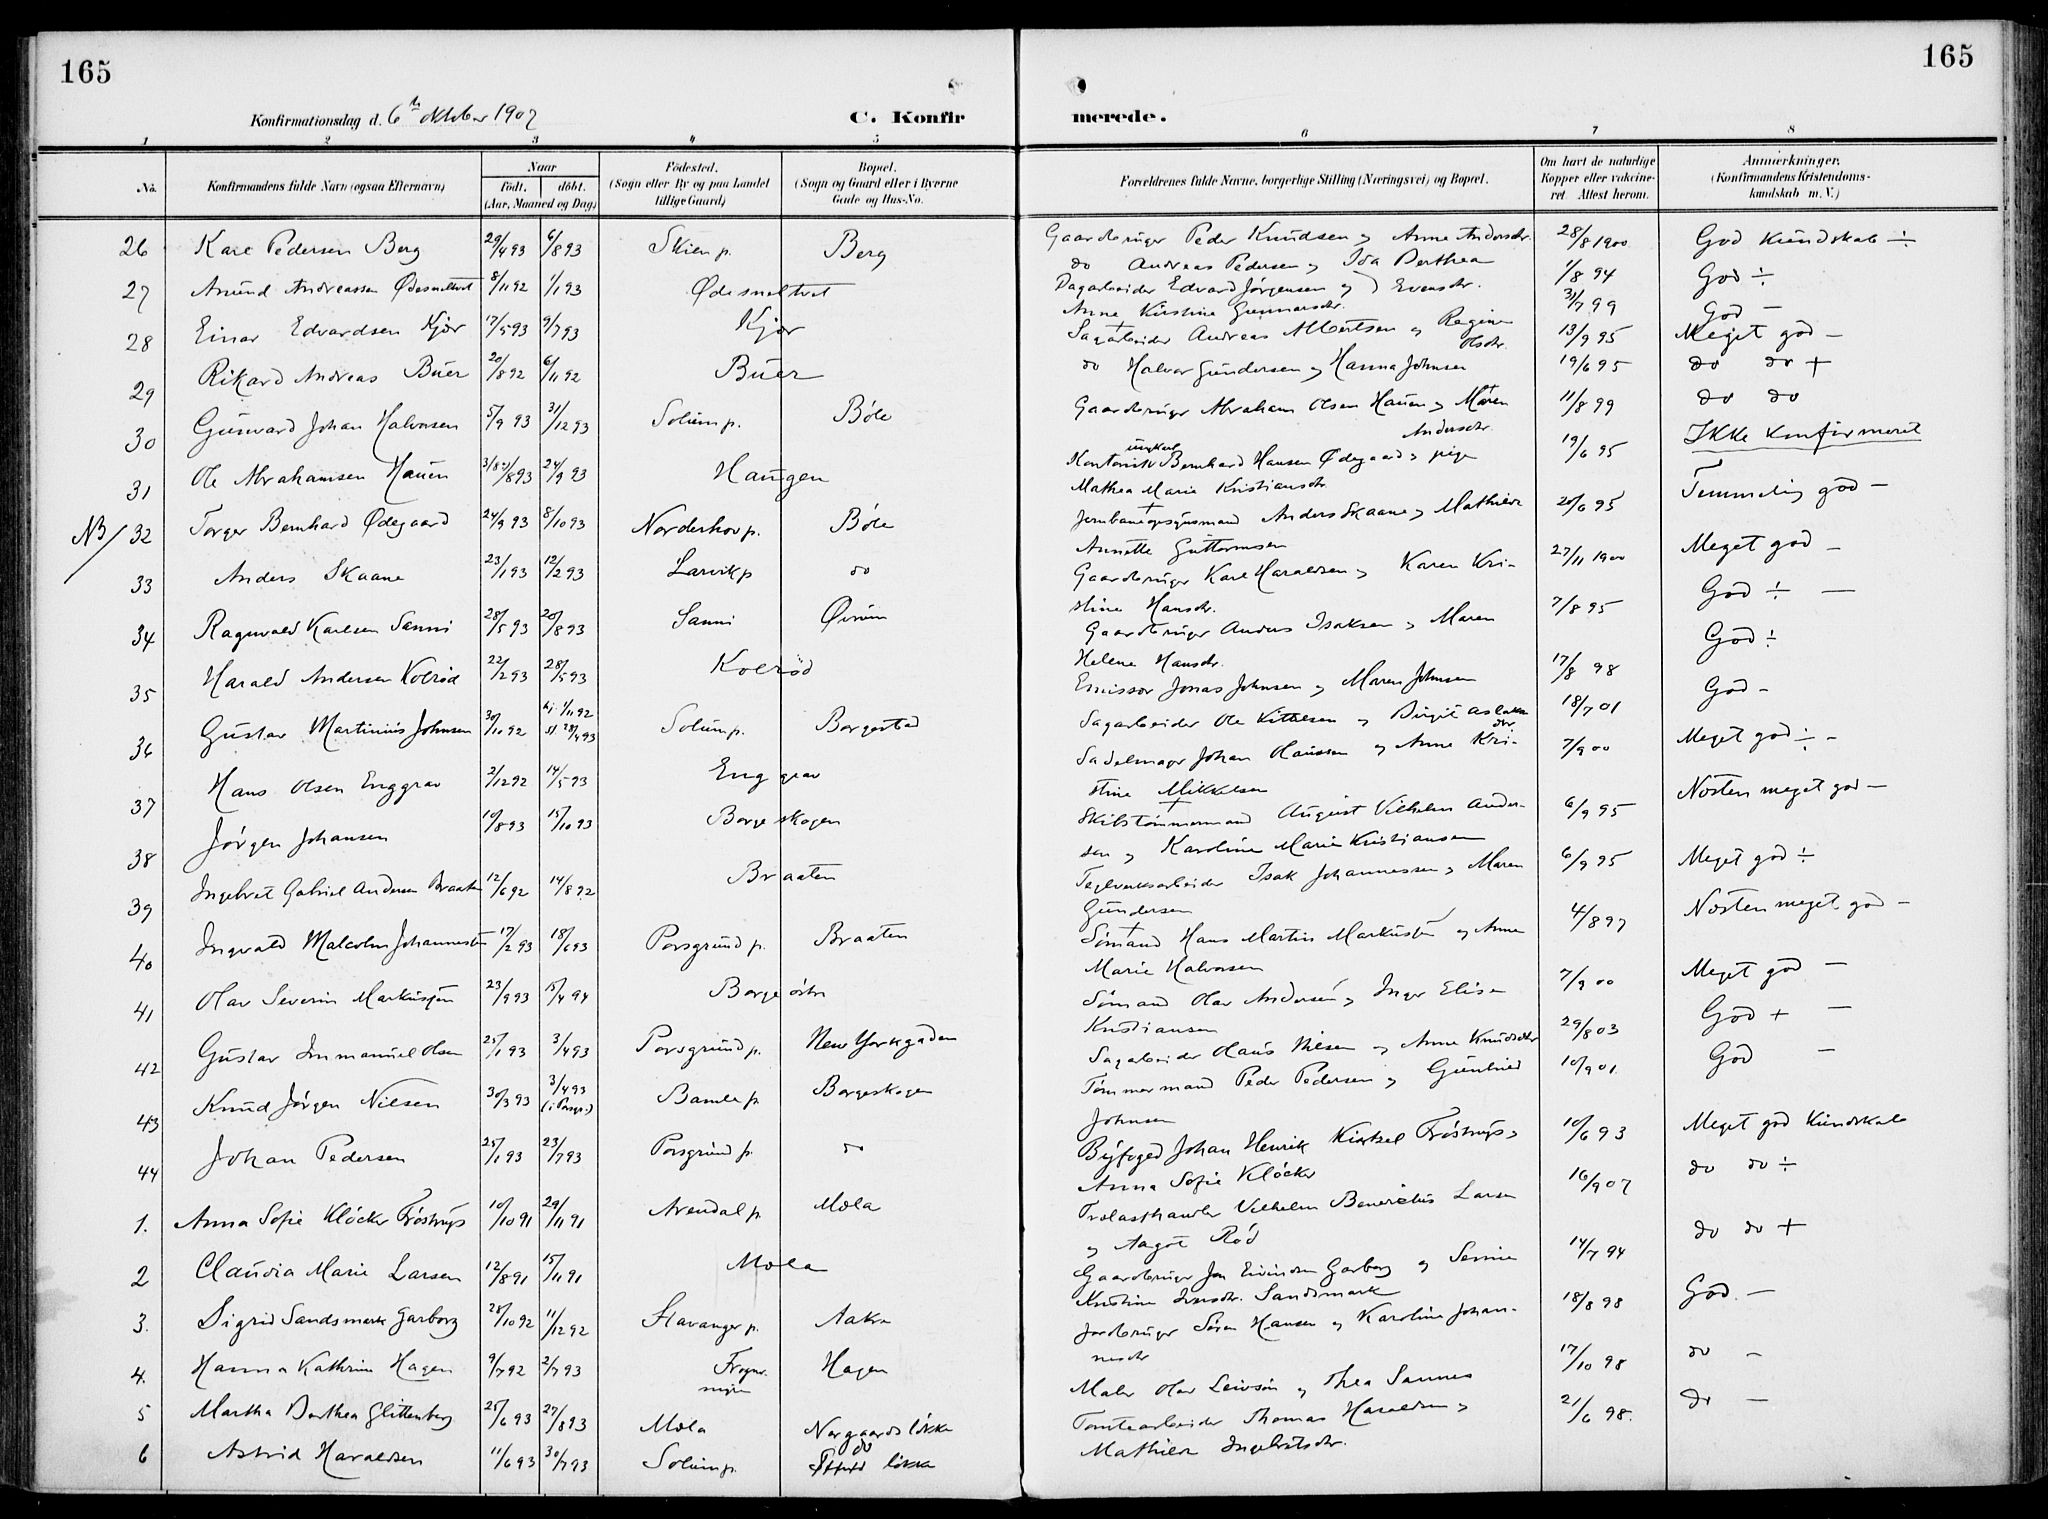 165
165
Konfirmationsdag d. 6te Oktober 1907
C. Konfirmerede.
1 2 3 4 5 6 7 8
No. Konfirmandens fulde Navn (ogsaa Efternavn) Naar født. døbt. (Aar, Maaned og Dag) Fødested. (Sogn eller By og paa Landet tillige Gaard) Bopæl. (Sogn og Gaard eller i Byerne Gade og Hus-No. Forældrenes fulde Navne, borgerlige Stilling (Næringsvei) og Bopæl. Om havt de naturlige Kopper eller vaccineret Attest herom. Anmærkninger. (Konfirmandens Kristendomskundskab m. V.)
26 Karl Pedersen Berg 29/4 93 6/8 93 Skien p. Berg Gaardbruger Peder Knudsen og Anne Andersdr. 28/8 1900 God Kundskab ÷
27 Amund Andreassen Ødesneltvet 8/11 92 1/1 93 Ødesneltvet do Andreas Pedersen og Ida Berthea 1/8 94 God ÷
28 Einar Edvardsen Kjør 17/5 93 9/7 93 Kjør Dagarbeider Edvard Jørgensen og Evensdr. 31/7 99 God —
Anne Kirstine Gunnarsdr.
29 Rikard Andreas Buer 20/8 92 6/11 92 Buer Sagarbeider Andreas Albertsen og Regine Olsdr. 13/9 95 Meget god —
30 Gunvard Johan Halvorsen 5/9 93 31/12 93 Solum p. Bøle do Halvor Gundersen og Hanna Johnsen 19/6 95 do do +
31 Ole Abrahamsen Hauen 24/9 93 Haugen Gaardbruger Abraham Olsen Hauen og Maren Andersdr. 11/8 99 do do
NB/ 32 Torger Bernhard Ødegaard 24/9 93 8/10 93 Norderhov p. Bøle Kontorist ungkarl Bernhard Hansen Ødegaard og pige 19/6 95 Ikke konfirmeret
Mathea Marie Kristiansdr.
33 Anders Skaane 23/1 93 12/2 93 Larvik p do Jernbaneopsynsmand Anders Skaane og Mathilde 20/6 95 Temmelig god —
Annette Guttormsen
34 Ragnvald Karlsen Sanni 28/5 93 20/8 93 Sanni Ørum Gaardbruger Karl Haraldsen og Karen Kri- 27/11 1900 Meget god —
stine Hansdr.
35 Harald Andersen Kolrød 22/2 93 28/5 93 Kolrød Gaardbruger Anders Isaksen og Maren 7/8 95 God ÷ —
Helene Hansdr.
36 Gustav Martinius Johnsen 30/10 92 hj. 1/11 92 st. 28/4 93 Solum p. Borgestad Emissær Jonas Johnsen og Maren Johnsen 17/8 98 God ÷
37 Hans Olsen Enggrav 2/12 92 14/5 93 Enggrav Sagarbeider Ole Kittilsen og Birgit Aslaksdr 18/7 01 God -
38 Jørgen Johansen 10/8 93 15/10 93 Borgeskogen Sadelmager Johan Hanssen og Anne Kri- 7/9 00 Meget god ÷ -
stine Mikkelsen
39 Ingebret Gabriel Andersen Braaten 12/6 92 14/8 92 Braaten Skibstømmermand August Vilhelm Ander- 6/9 95 Næsten meget god —
sen og Karoline Marie Kristiansen
40 Ingvald Malcolm Johannessen 17/2 93 18/6 93 Porsgrund p. Braaten Teglverksarbeider Isak Johannessen og Maren 6/9 95 Meget god ÷
Gundersen
41 Olav Severin Markussen 23/9 93 15/4 94 Borge østre Sømand Hans Martin Markussen og Anne 4/8 97 Næsten meget god —
Marie Halvorsen
42 Gustav Immanuel Olsen 25/1 93 3/4 93 Porsgrund p. New Yorkgaden Sømand Olav Andersen og Inger Elise 7/9 00 Meget god —
Kristiansen
43 Knud Jørgen Nilsen 30/3 93 3/4 93 (i Porsgr.) Bamle p. Borgeskogen Sagarbeider Hans Nilsen og Anne Knudsdtr 29/8 03 God + —
44 Johan Pedersen 25/1 93 23/7 93 Porsgrund p. do Tømmermand Peder Pedersen og Gunhild 10/9 01 God —
Johnsen
1. Anna Sofie Kløcker Frøstrup 10/10 91 29/11 91 Arendal p. Mæla Byfoged Johan Henrik Frøstrup og 10/6 93 Meget god Kundskab
Anna Sofie Kløcker
2 Claudia Marie Larsen 12/8 91 15/11 91 Mæla Trælasthandler Vilhelm Benedictus Larsen 16/9 07 do do ÷
og Aagot Rød
3. Sigrid Sandsmark Garborg 28/10 92 11/12 92 Stavanger p. Aakre Gaardbruger Jon Eivindsen Garborg og Serine 14/7 94 do do +
Kristine Sandsmark
4. Hanna Kathrine Hagen 9/7 92 2/7 93 Hagen Jordbruger Søren Hansen og Karoline Johan- 18/8 98 God. —
nesdr
5 Martha Berthea Glittenberg 25/6 93 27/8 93 Mæla Norgaardsløkka Maler Olav Leivson og Thea Sannes 17/10 98 do -
6 Astrid Haraldsen 11/6 93 30/7 93 Solum p. do løkka Tomtearbeider Thomas Haraldsen og 21/6 98. do —
Mathilde Ingebretsdr.